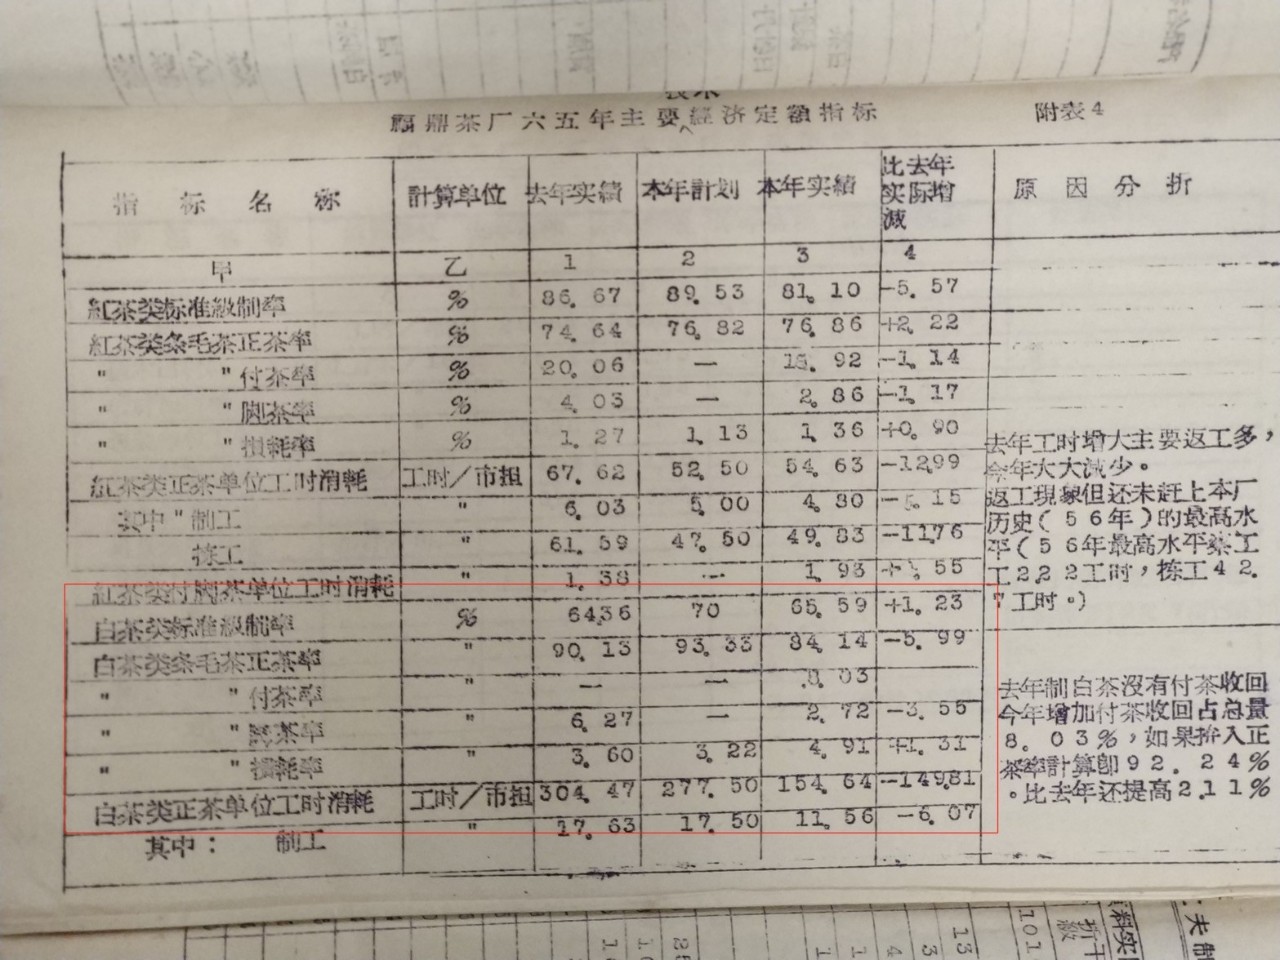 福鼎茶厂六五年主要经济定额指标
附表4
指 标 名 称 計算单位 去年实績 本年計划 本年实績 比去年实际增减 原 因 分 折
甲 乙 1 2 3 4
紅茶类标准級制率 % 86.67 89.53 81.10 -5.57
紅茶类条毛茶正茶率 % 74.64 76.82 76.86 +2.22
" " 付茶率 % 20.06 — 18.92 -1.14
" " 脚茶率 % 4.03 — 2.86 -1.17
" " 損耗率 % 1.27 1.13 1.36 +0.90
紅茶类正茶单位工时消耗 工时/市担 67.62 52.50 54.63 -1299
其中"制工 " 6.03 5.00 4.80 15
拣工 " 61.59 47.50 49.83 -1176
紅茶类付脚茶单位工时消耗 " 1.38 — 1.93 55
白茶类标准級制率 % 6436 70 65.59 +1.23
白茶类条毛茶正茶率 " 90.13 93.33 84.14 -5.99
" " 付茶率 " — — 8.03
" " 脚茶率 " 6.27 — 2.72 -3.55
" " 損耗率 " 3.60 3.22 4.91 +1.31
白茶类正茶单位工时消耗 工时/市担 304.47 277.50 154.64 -14981
其中: 制工 " 17.63 17.50 11.56 -6.07
去年工时增大主要返工多,
今年大大减少。
返工現象但还未赶上本厂
历史(56年)的最高水
平(56年最高水平
工2.22工时,拣工42.
7工时。)
去年制白茶沒有付茶收回
今年增加付茶收回占总量
8.03%,如果拚入正
茶率計算卽92.24%
。比去年还提高2.11%